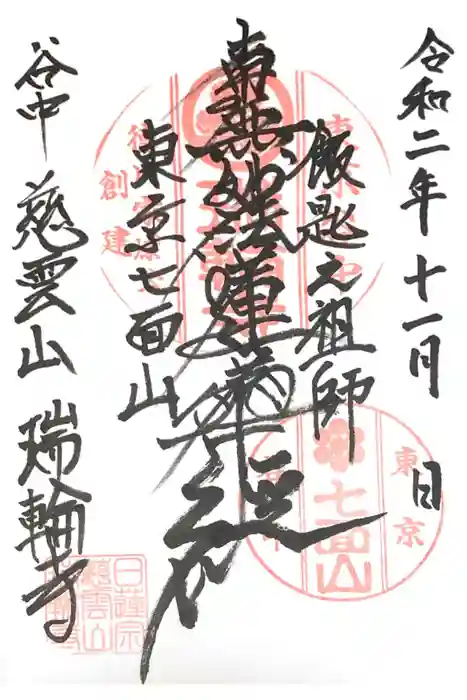 令和二年十一月 日
飯匙元祖師
南無妙法蓮華経
東京七面山
谷中 慈雲山 瑞輪寺
東京
七面山
創建
日蓮宗
慈雲山
瑞輪寺